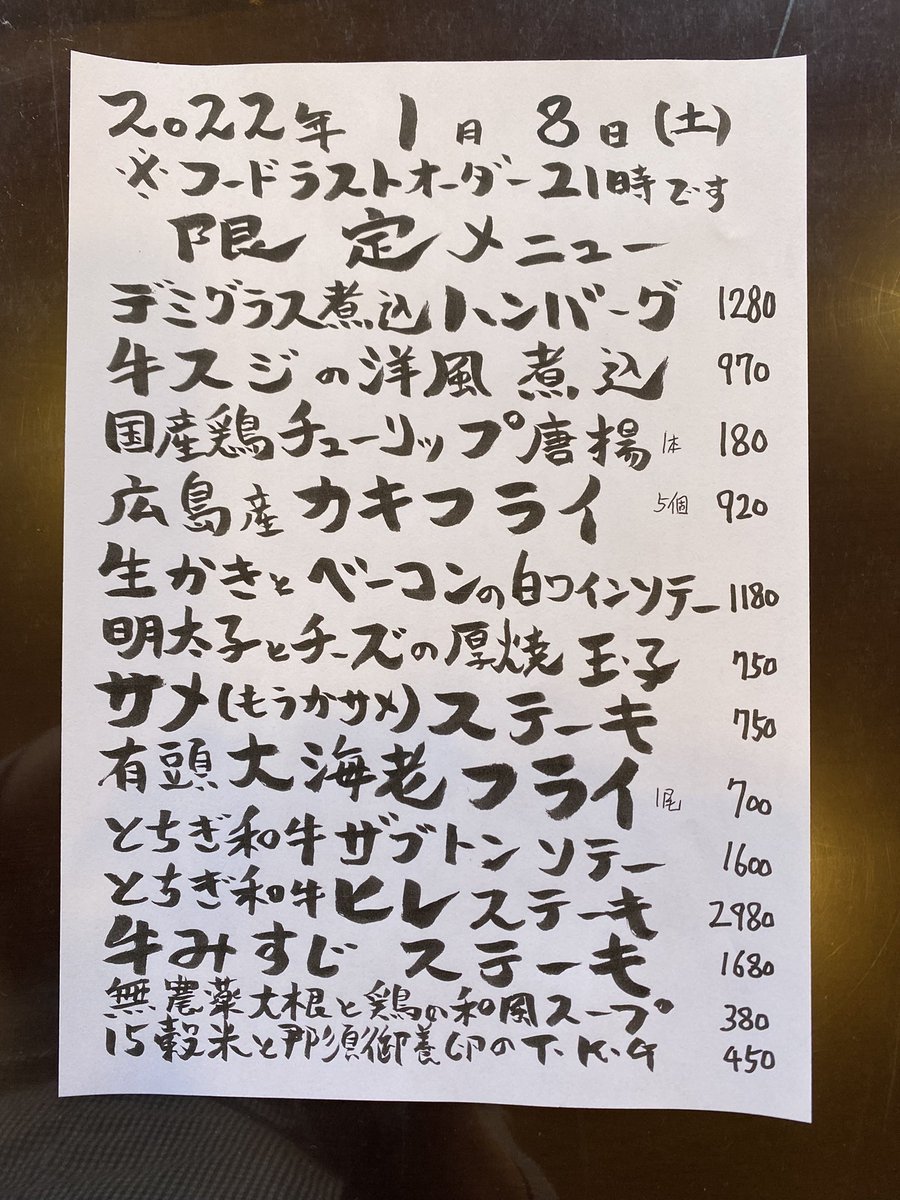 2022年 1月 8日(土)
※フードラストオーダー21時です
限定メニュー
デミグラス煮込ハンバーグ 1280
牛スジの洋風煮込 970
国産鶏チューリップ唐揚 1本 180
広島産カキフライ 5個 920
生かきとベーコンの白ワインソテー 1180
明太子とチーズの厚焼玉子 750
サメ(もうかサメ)ステーキ 750
有頭大海老フライ 1尾 700
とちぎ和牛ザブトンソテー 1600
とちぎ和牛ヒレステーキ 2980
牛みすじステーキ 1680
無農薬大根と鶏の和風スープ 380
15穀米と那須御養卵のT.K.G 450